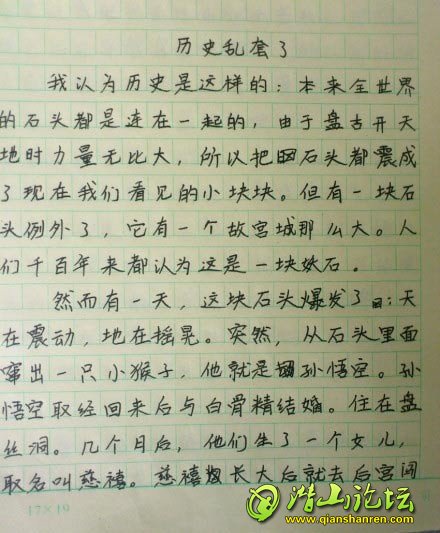 历史乱套了
我认为历史是这样的：本来全世界
的石头都是连在一起的，由于盘古开天
地时力量无比大，所以把石头都震成
了现在我们看见的小块块。但有一块石
头例外了，它有一个故宫城那么大。人
们千百年来都认为这是一块妖石。
然而有一天，这块石头爆发了：天
在震动，地在摇晃。突然，从石头里面
窜出一只小猴子，他就是孙悟空。孙
悟空取经回来后与白骨精结婚。住在盘
丝洞。几个月后，他们生了一个女儿，
取名叫慈禧。慈禧长大后就去后宫闯
17×19
潜山论坛
www.qianshanren.com